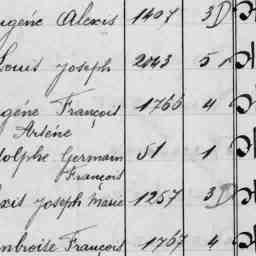 ugéne Alexis 1407 3D
Louis Joseph 2043 5
ugéne François 1766 4
Arsène
dolphe Germain 51 1
François
exis Joseph Marie 1257 3D
mbroise François 1767 4